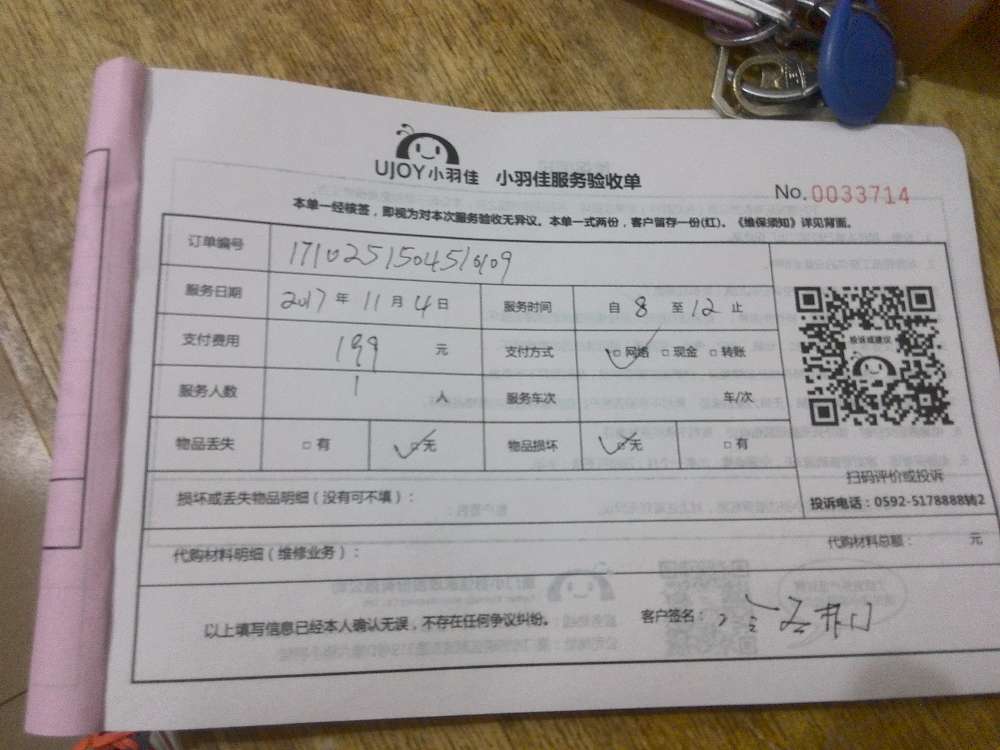 UJOY小羽佳 小羽佳服务验收单
No.0033714
本单一经核签，即视为对本次服务验收无异议。本单一式两份，客户留存一份(红)。《维保须知》详见背面。
订单编号
服务日期 2017年11月4日 服务时间 自8至12止
支付费用 199 元 支付方式 □网络 □现金 □转账
服务人数 1 人 服务车次 车/次
物品丢失 □有 □无 物品损坏 □无 □有
投诉或建议
扫码评价或投诉
投诉电话：0592-5178888转2
损坏或丢失物品明细（没有可不填）：
代购材料明细（维修业务）： 代购材料总额： 元
以上填写信息已经本人确认无误，不存在任何争议纠纷。 客户签名：